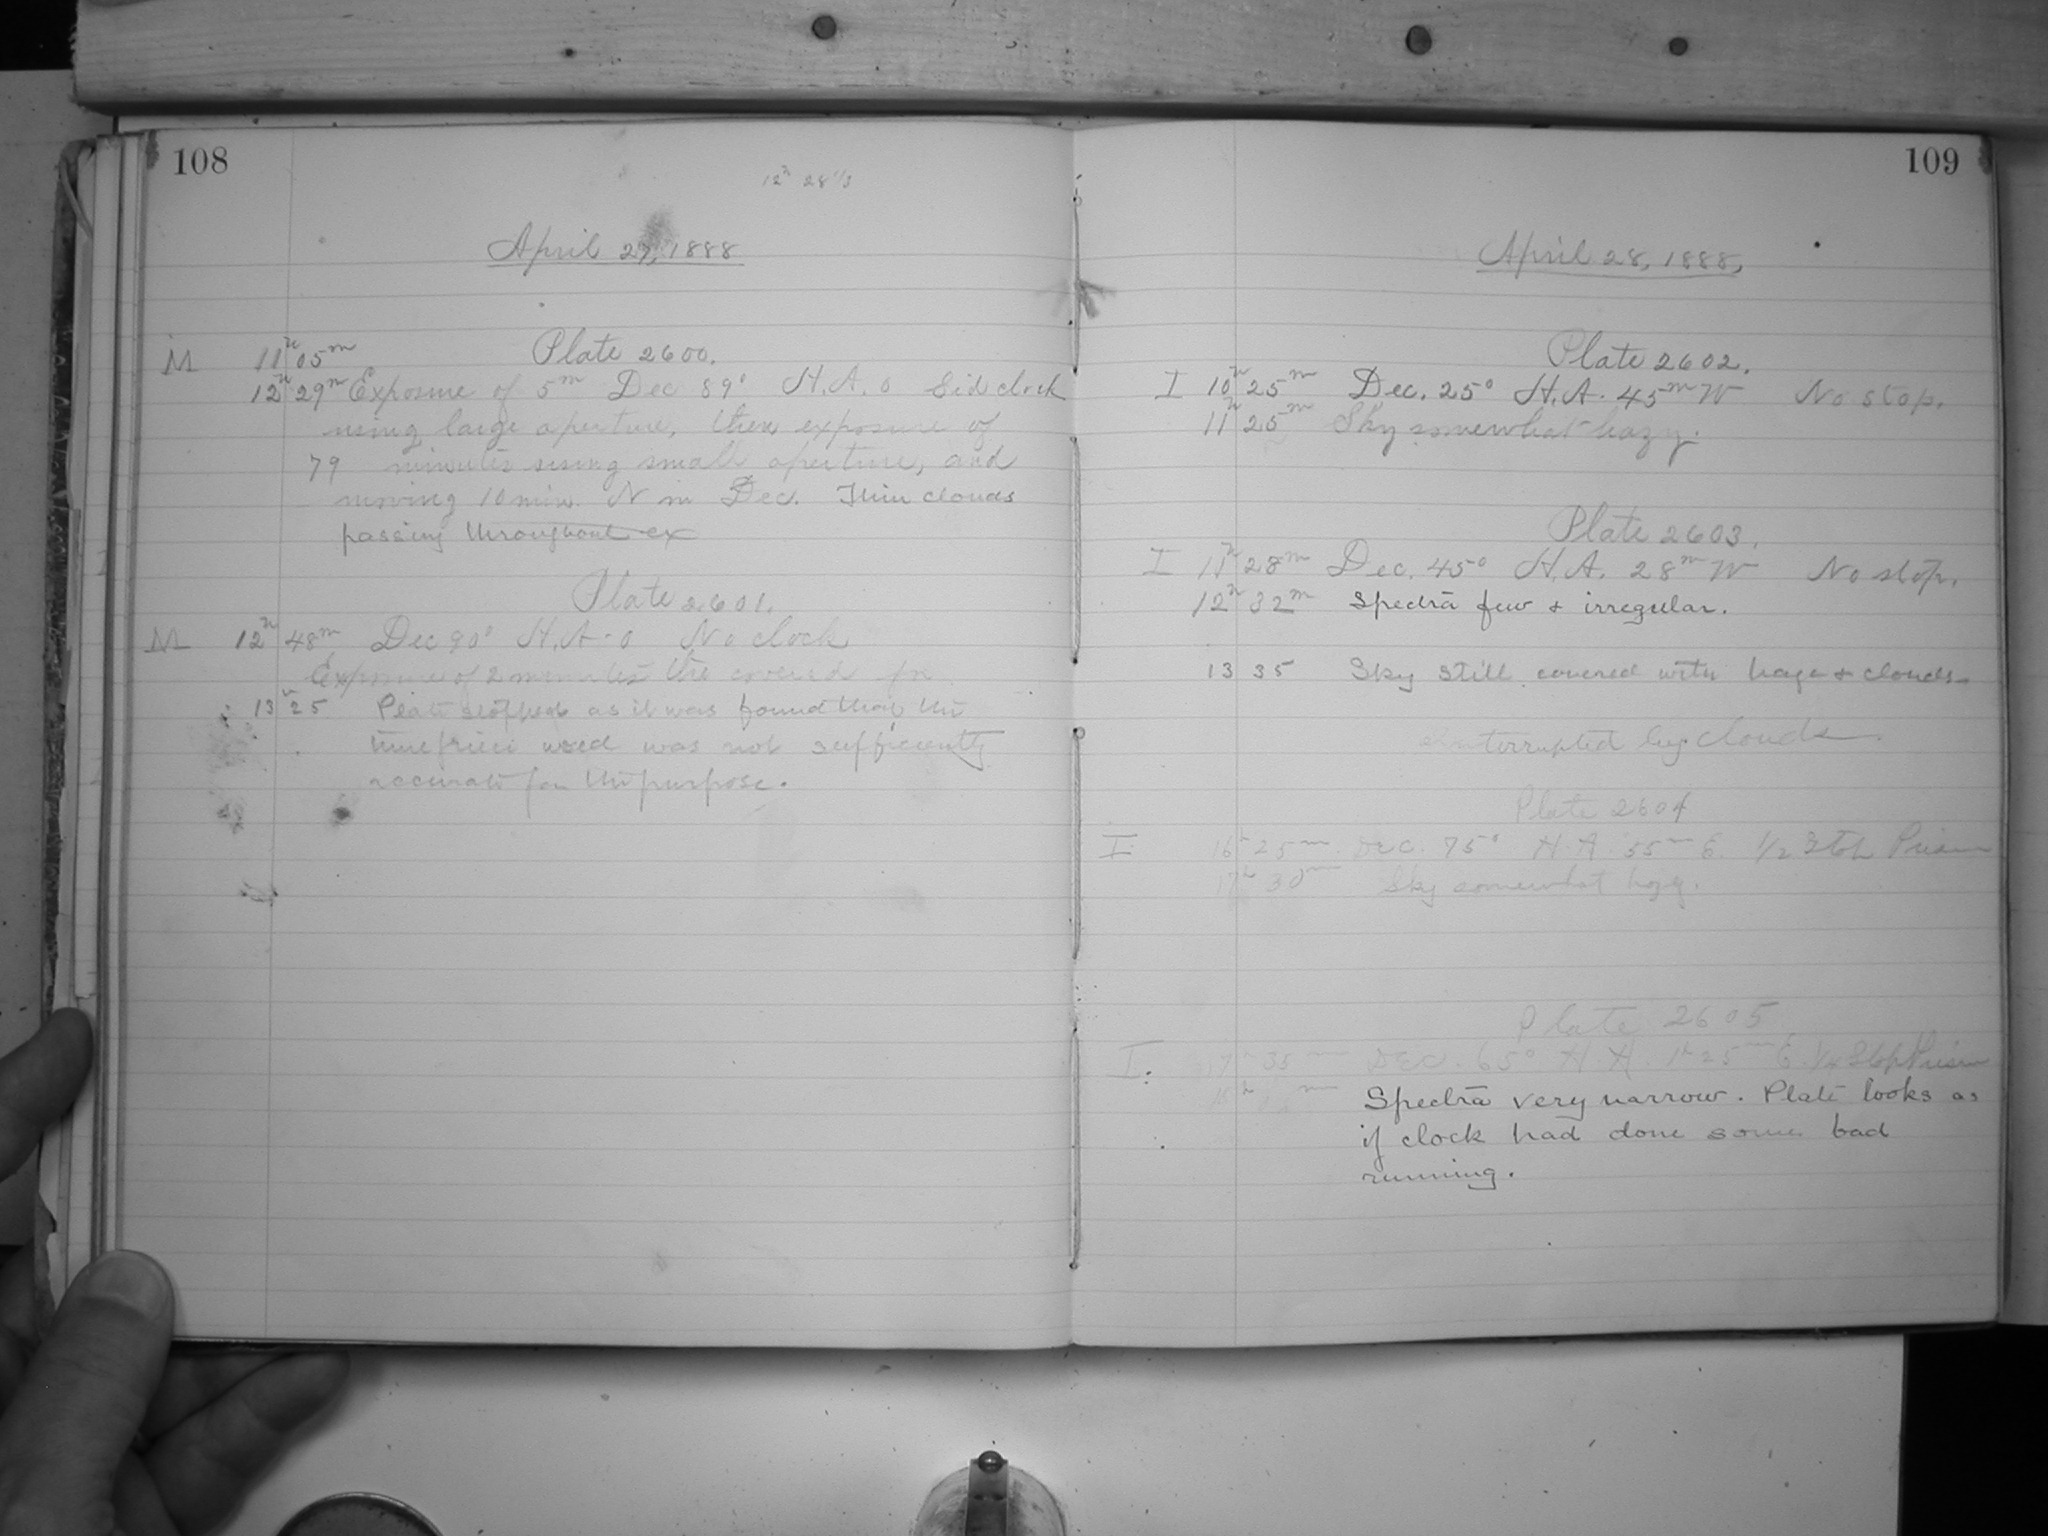 108
12h 28 1/3
April 27, 1888
Plate 2600.
M 11h 05m
12h 29m Exposure of 5m Dec 89° H.A. 0 Sid clock
using large aperture, then exposure of
79 minutes using small aperture, and
moving 10 min. N in Dec. Thin clouds
passing throughout ex
Plate 2601.
M 12h 48m Dec 90° H.A. 0 No clock
Exposure of 2 minutes covered for
13h 25 Plate stopped as it was found that the
used was not sufficiently
accurate for the purpose.
109
April 28, 1888,
Plate 2602.
I 10h 25m Dec. 25° H.A. 45m W No stop.
11h 25m Sky somewhat hazy.
Plate 2603.
I 11h 28m Dec. 45° H.A. 28m W No stop.
12h 32m Spectra few & irregular.
13 35 Sky still covered with haze & clouds
interrupted by clouds
Plate 2604
I 16h 25m Dec. 75° H.A. 55m E. 1/2 Stop Prism
17h 30m Sky somewhat hazy.
Plate 2605
I. 17h 35m Dec. 65° H.A. 1h 25m E. Stop Prism
Spectra very narrow. Plate looks as
if clock had done some bad
running.